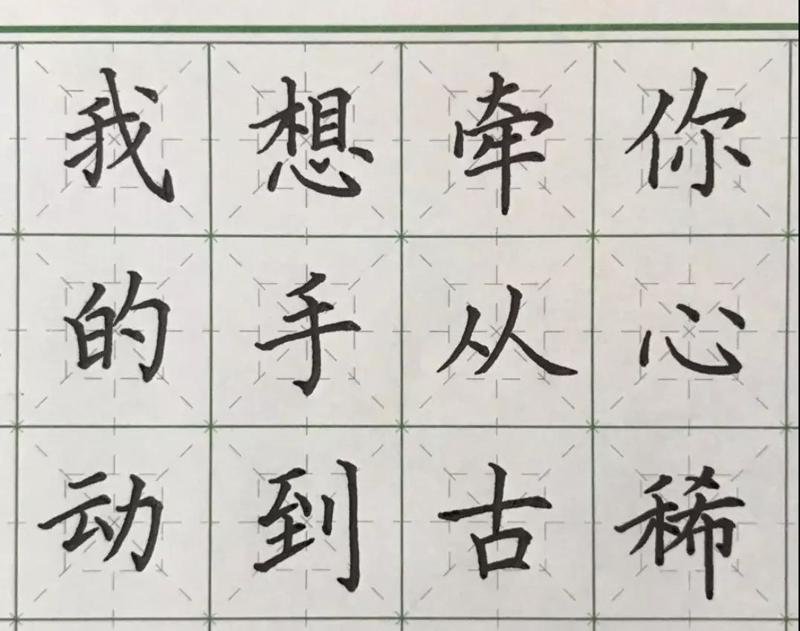 我想牵你
的手从心
动到古稀